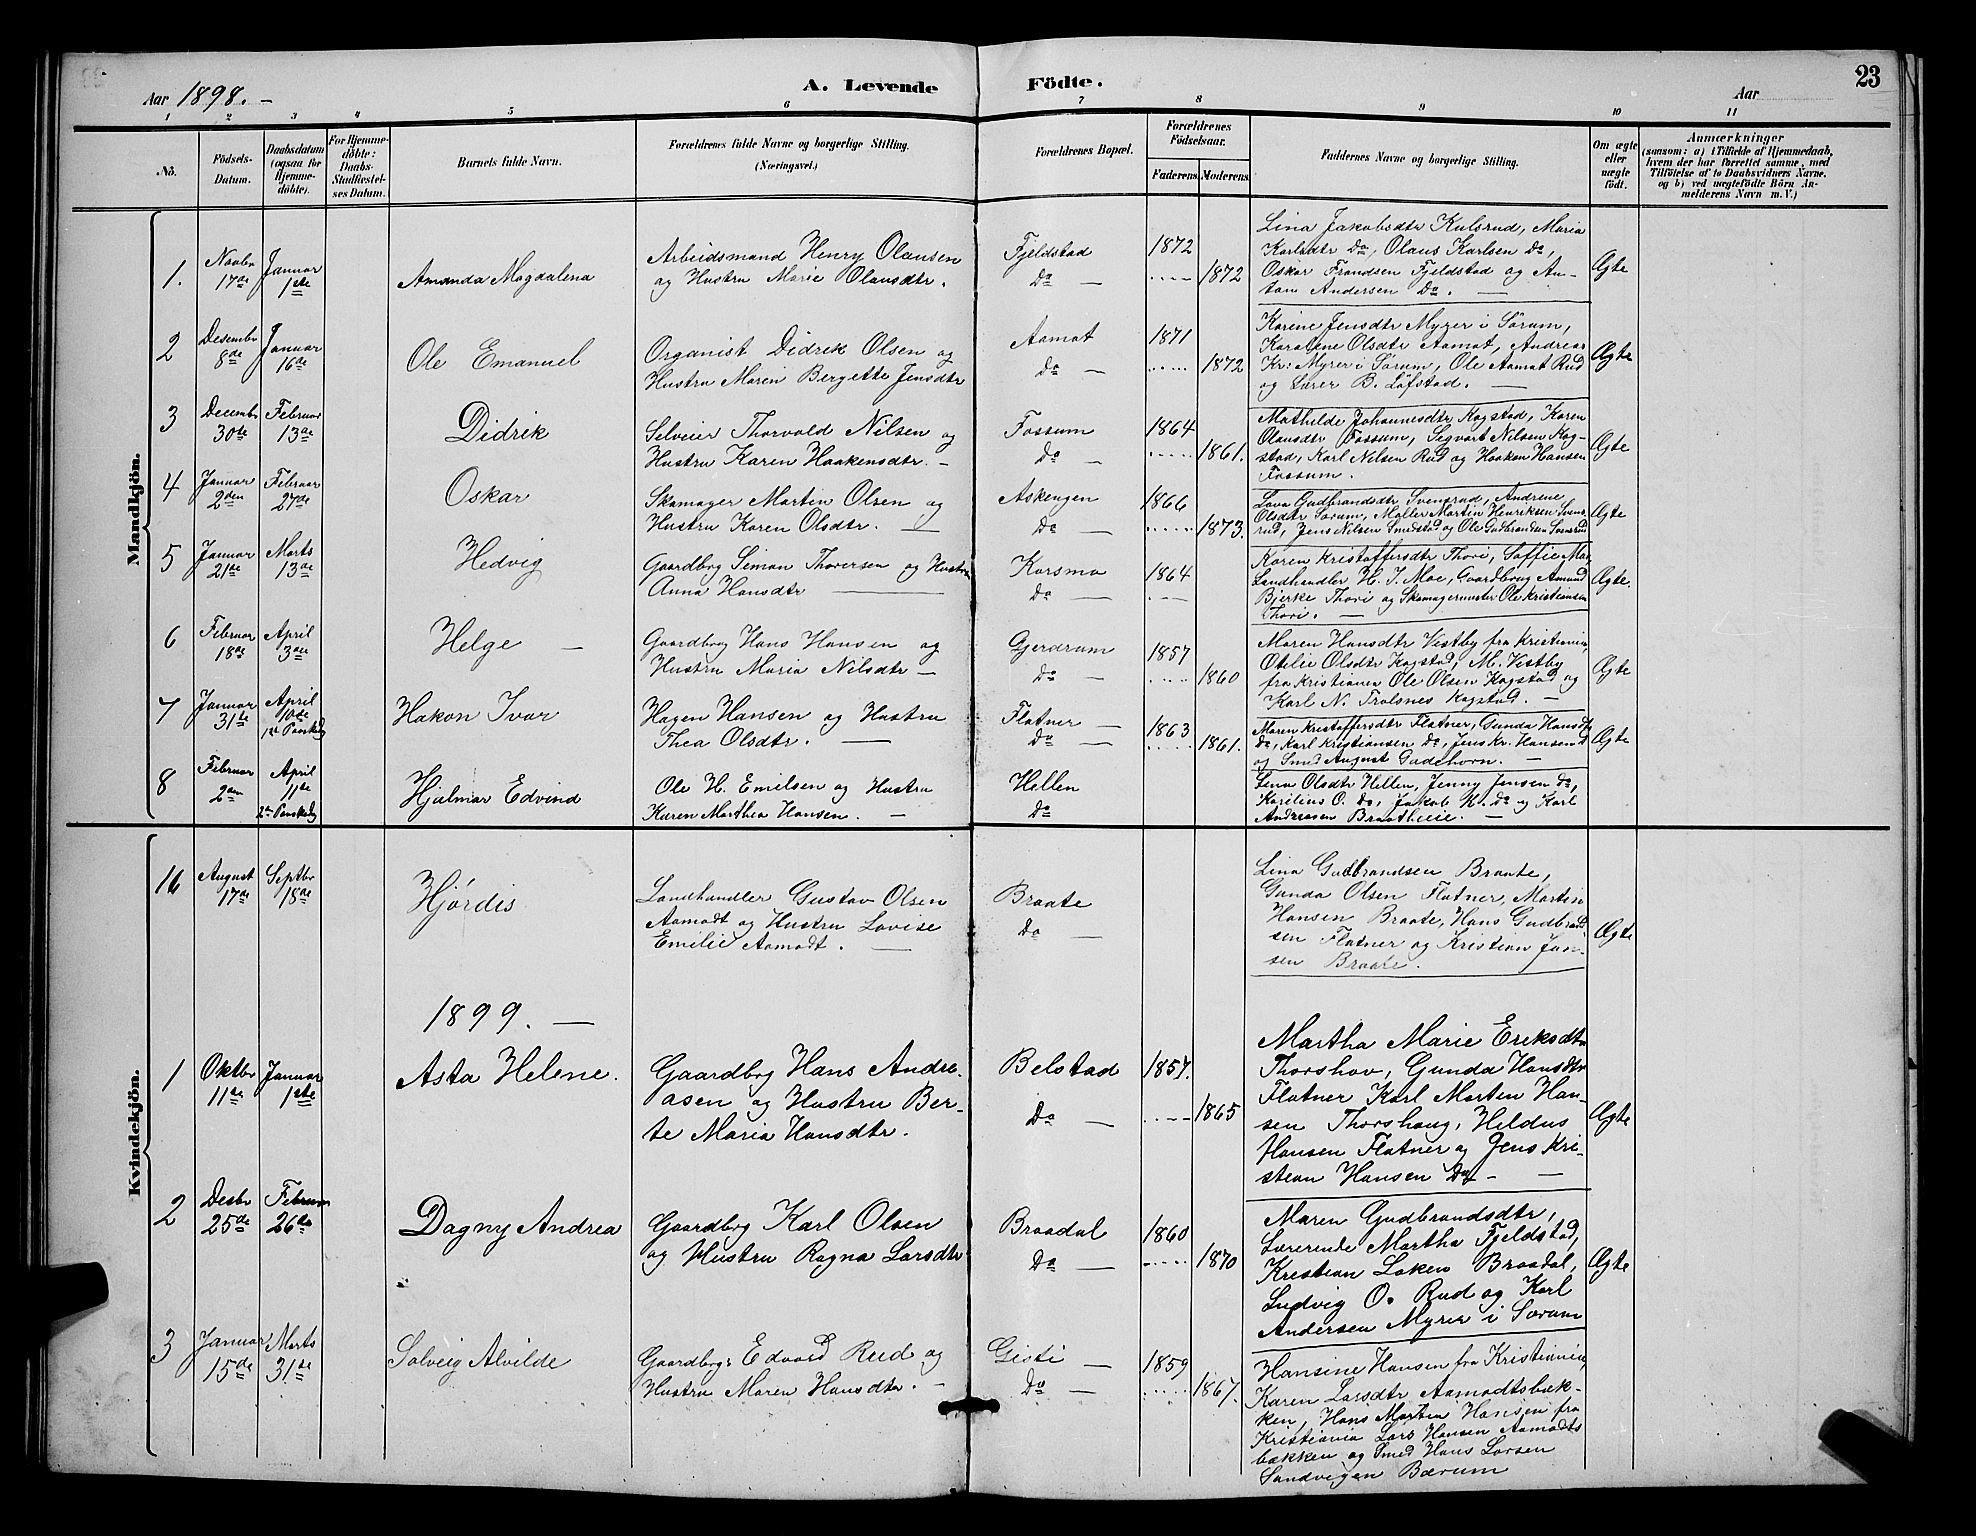 Aar 1898. –
A. Levende Födte.
Aar
23
1 2 3 4 5 6 7 8 9 10 11
No.
Födsels-Datum.
Daabsdatum (ogsaa for Hjemmedöbte).
For Hjemmedöbte: Daabs-Stadfæstelses Datum.
Barnets fulde Navn.
Forældrenes fulde Navne og borgerlige Stilling. (Næringsvei.)
Forældrenes Bopæl.
Forældrenes Födselsaar.
Faderens. Moderens.
Faddernes Navne og borgerlige Stilling.
Om ægte eller uægte født.
Anmærkninger
(saasom: a) i Tilfælde af Hjemmedaab, hvem der har forrettet samme, med Tilföielse af to Daabsvidners Navne, og b) ved uægtefödte Börn Anmelderens Navn m. V.)
Mandkjön.
1. Novbr 17de Januar 1ste
Amanda Magdalena
Arbeidsmand Henry Olausen
og Hustru Marie Olausdtr.
Fjeldstad
Do —
1872
1872
Lina Jakobsdtr Kulsrud, Maria
Karlsdtr Do, Olaus Karlsen Do,
Oskar Frandsen Fjeldstad og An-
ton Andersen Do. —
Ægte
2 Desembr 8de Januar 16de
Ole Emanuel
Organist Didrik Olsen og
Hustru Maren Bergette Jensdtr
Aamot
Do —
1871
1872
Karine Jensdtr Myrer i Sørum,
Karolene Olsdtr Aamot, Andreas
Kr. Myrer i Sørum, Ole Aamot Rud
og Lærer B. Løfstad. —
Ægte
3 Decembr 30te Februar 13de
Didrik
Selveier Thorvald Nilsen og
Hustru Karen Haakensdtr. –
Fossum
Do —
1864
1861.
Mathilde Johannesdtr Kogstad, Karen
Olausdtr Fossum, Segvart Nilsen Kog-
stad, Karl Nilsen Rud og Haaken Hansen
Fossum.
Ægte
4 Januar 2den Februar 27de
Oskar
Skomager Martin Olsen og
Hustru Karen Olsdtr. —
Askengen
Do —
1866
1873.
Lova Gudbrandsdtr Svensrud, Andrene
Olsdtr Sørum, Møller Martin Henriksen Svens-
rud, Jens Nilsen Smedstad og Ole Gudbrandsen Svensrud
Ægte
5 Januar 21de Marts 13de
Hedvig
Gaardbrg Simon Thoresen og Hustru
Anna Hansdtr —
Korsmo
Do —
1864
Karen Kristoffersdtr Thori, Soffie Moe,
Landhandler H. J. Moe, Gaardbrug Amund
Bjerke Thori og Skomagermester Ole Kristiansen
Thori. —
Ægte.
6 Februar 18de April 3die
Helge –
Gaardbrg Hans Hansen og
Hustru Maria Nilsdtr –
Gjerdrum
Do —
1857
1860
Maren Hansdtr Vestby fra Kristiania
Otelie Olsdtr Kogstad, M. Vestby
fra Kristiania Ole Olsen Kogstad og
Karl N. Trolsnes Kogstad. –
Ægte
7 Januar 31te April 10de 1ste Paaskedg
Hakon Ivar
Hagen Hansen og Hustru
Thea Olsdtr. —
Flatner —
Do —
1863
1861.
Maren Kristoffersdtr Flatner, Gunda Hansdtr
Do, Karl Kristiansen Do, Jens Kr. Hansen Do
og Smed August Gadehorn. –
Ægte
8 Februar 2den April 11te 2den Paaskedg
Hjalmar Edvind
Ole H. Emilsen og Hustru
Karen Marthea Hansen. –
Hellen
Do
Lena Olsdtr Hellen, Jenny Jensen Do,
Karelius O. Do, Jakob K. Do og Karl
Andreasen Braatheie. –
Kvindekjön.
16 August 17de Septbr 18de
Hjørdis
Landhandler Gustav Olsen
Aamodt og Hustru Lovise
Emilie Aamodt. —
Braate
Do —
Lina Gudbrandsen Braate,
Gunda Olsen Flatner, Martin
Hansen Braate, Hans Gudbrand
sen Flatner og Kristian Jan-
sen Braate.
Ægte
1899. —
1 Oktbr 11te Januar 1ste
Asta Helene.
Gaardbrg Hans Andre-
asen og Hustru Ber-
te Maria Hansdtr.
Belstad
Do —
1857.
1865
Martha Marie Eriksdtr
Thorshov, Gunda Hansdtr
Flatner Karl Morten Han-
sen Thorshaug, Heldus
Hansen Flatner og Jens Kri-
stian Hansen Do – —
Ægte
2 Desbr 25de Februar 26de
Dagny Andrea
Gaardbrg Karl Olsen
og Hustru Ragna Larsdtr
Braadal
Do —
1860
1870
Maren Gudbrandsdtr,
Lærerende Martha Fjeldstad,
Kristian Loken Braadal,
Ludvig O. Rud og Karl
Andersen Myrer i Sørum
Ægte
3 Januar 15de Marts 31de
Solveig Alvilde
Gaardbrgs Edvard Rud og
Hustru Maren Hansdtr. –
Gisti —
Do —
1859
1867.
Hansine Hansen fra Kristiania
Karen Larsdtr Aamodtsbæk-
ken, Hans Martin Hansen fra
Kristiania Lars Hansen Aamodts
bækken og Smed Hans Larsen
Sandvigen Bærum